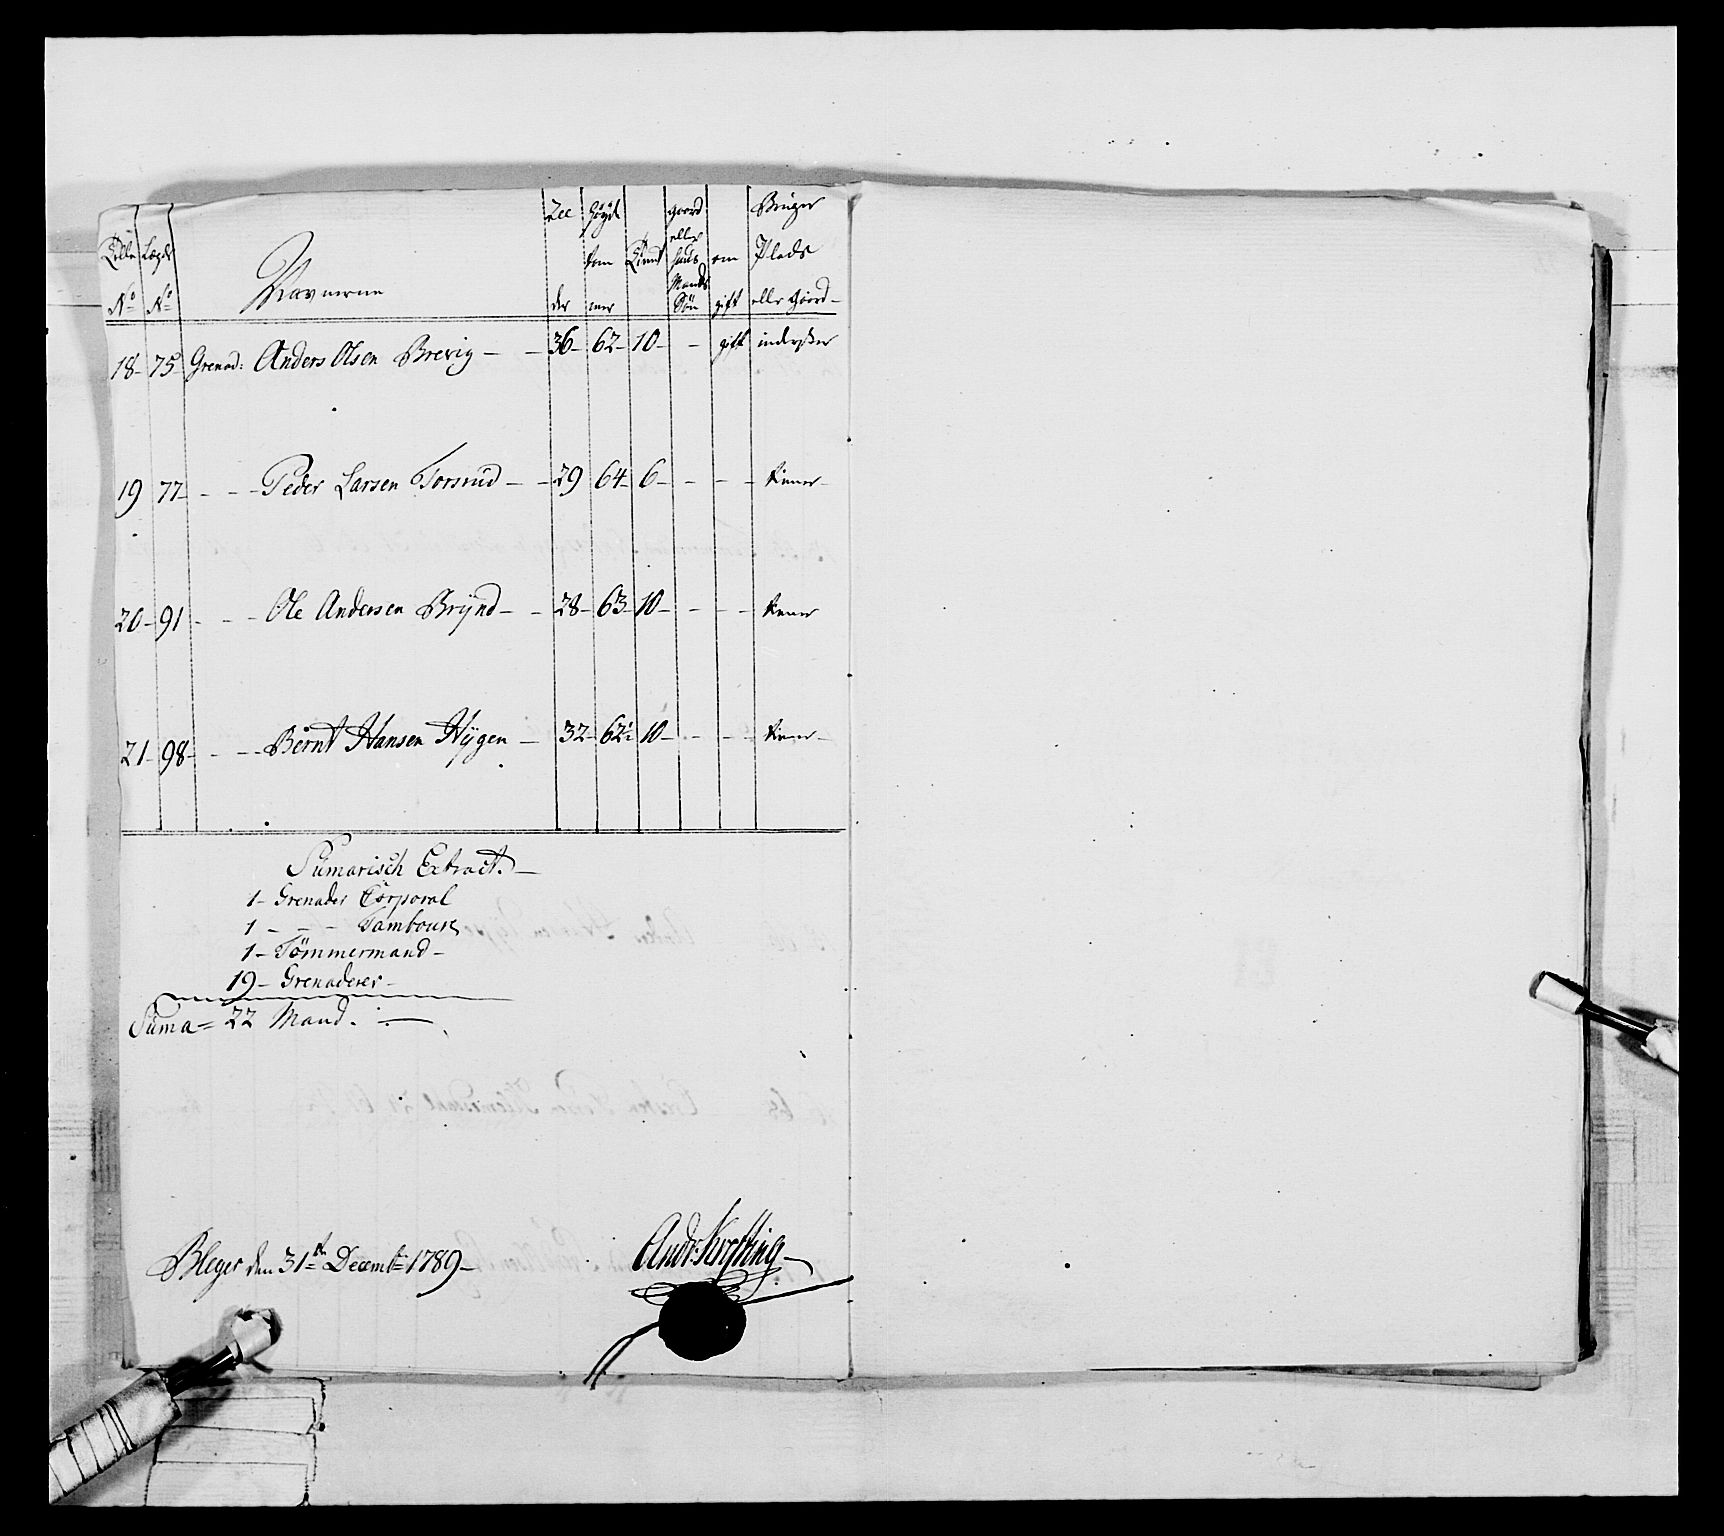 Rolle No
Lægds No
Navnerne
Al der
Høyde tom mer
Tient
gaard eller huus Mands Søn
om gift
Bruger Plads eller Gaard
18 - 75 Grenad: Anders Olsen Brevig - - 36 - 62 - 10 - - gift inderster
19 77 - - - Peder Larsen Torsrud - - 29 64 - 6 - - - - tiener -
20 - 91 - - - Ole Andersen Brÿnd - - 28 - 63 - 10 - - - - tiener
21 - 98 - - - Bernt Hansen Hÿgen - 32 - 62½ 10 - - - - tiener -
Sumarisch Extract. -
1 - Grenader Corporal
1 - - - Tambour
1 - Tömmermand -
19 - Grenaderer -
Suma = 22 Mand.
Bleger den 31te Decembr 1789 -
Andr: Krefting